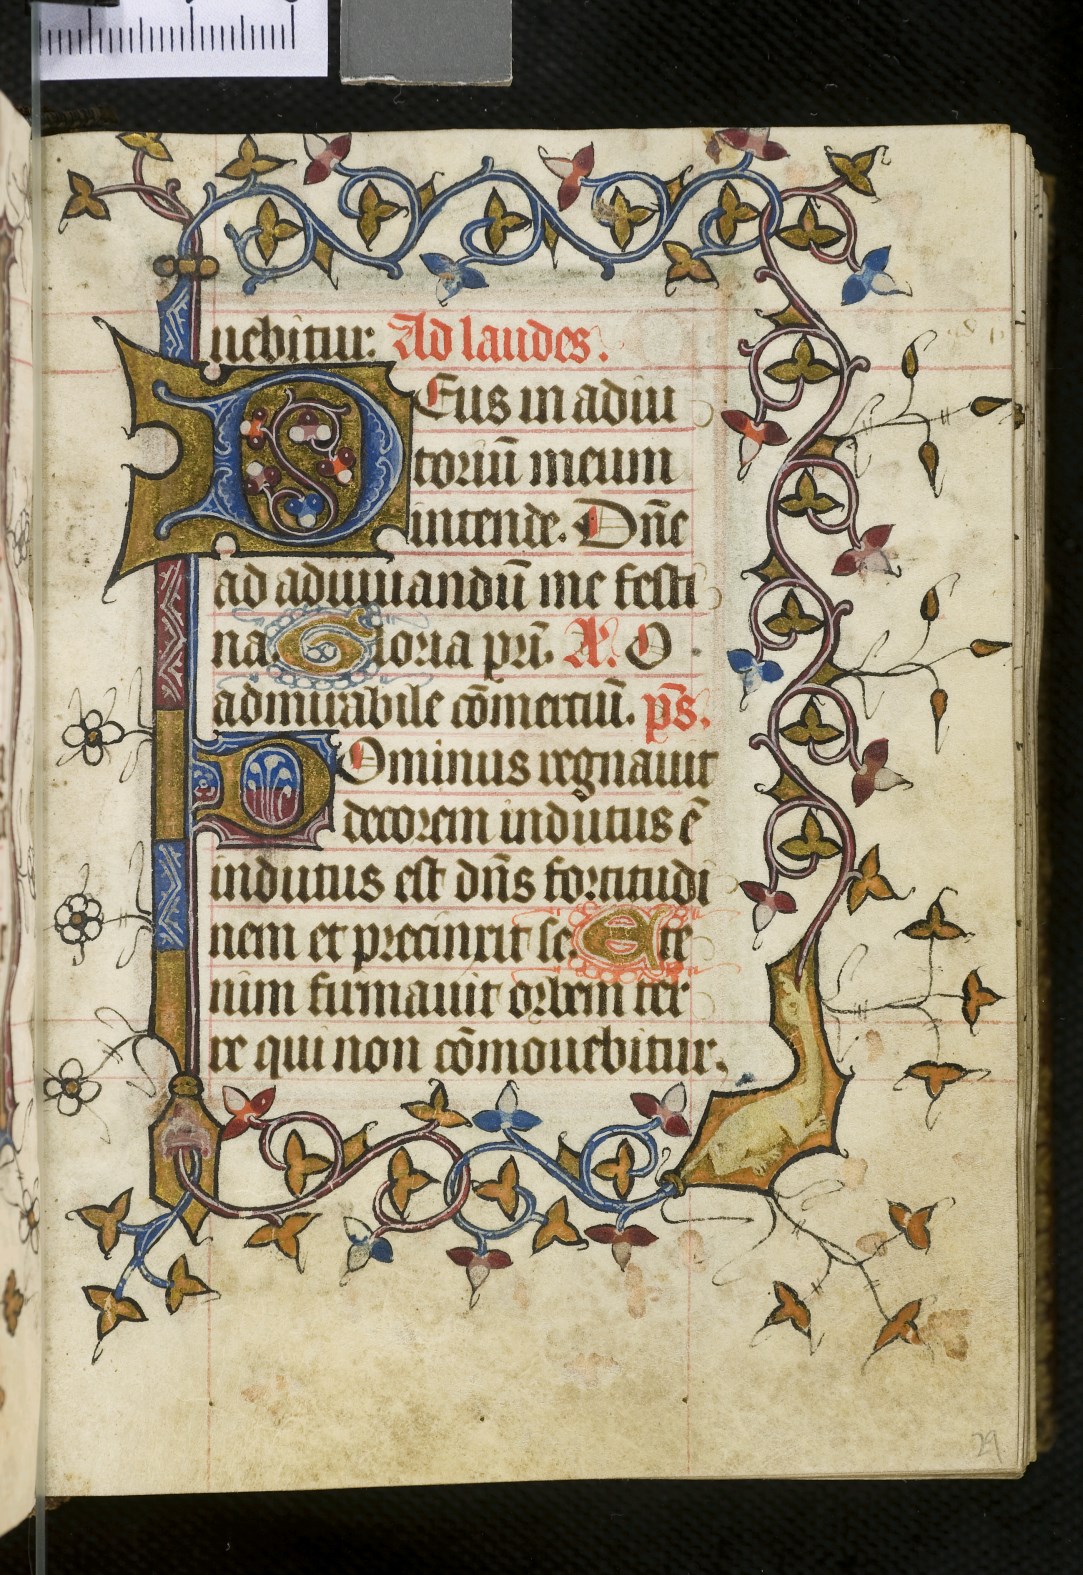 uebitur. Ad laudes.
Deus in adiu
toriū meum
intende. Dn̄e
ad adiuuandū me festi
na Gloria pr̄i. A. O
admirabile cōmertiū. ps̄.
Dominus regnauit
decorem indutus ē
indutus est dn̄s fortitudi
nem et precinxit se. Ete
nim firmauit orbem ter
re qui non cōmouebitur.
29